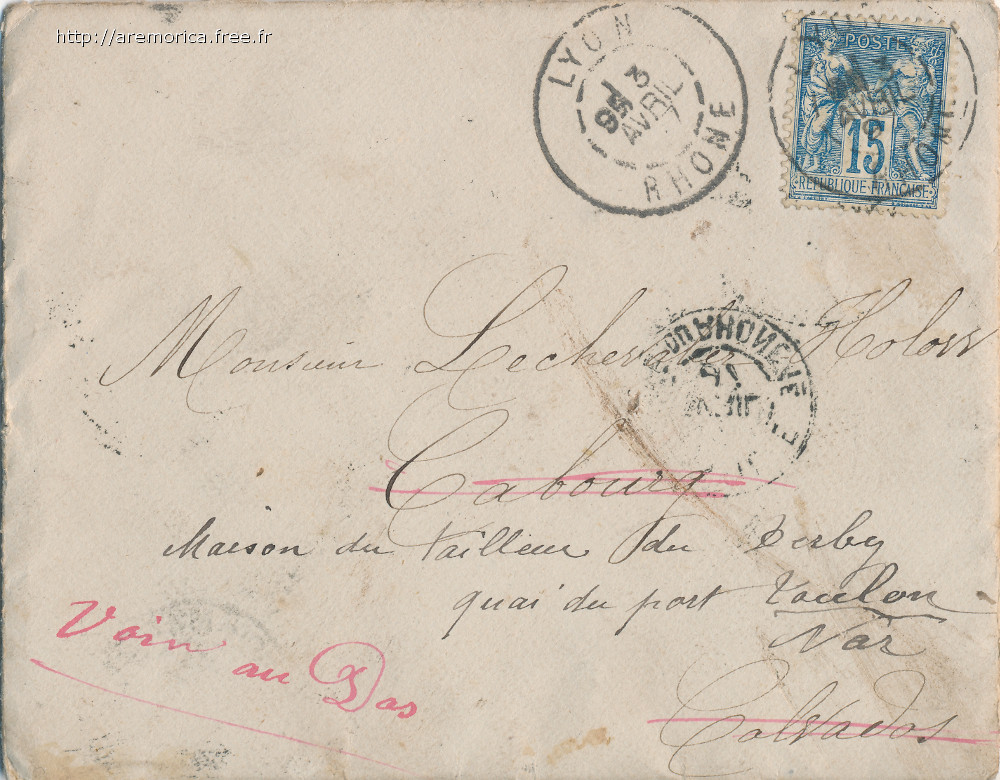 http://aremorica.free.fr
LYON
3
AVRIL
RHONE
POSTE
15
REPUBLIQUE FRANÇAISE
Monsieur Lechevalier
Cabourg
Maison du Tailleur du Derby
quai du port Toulon
Var
Voir au Dos
Calvados